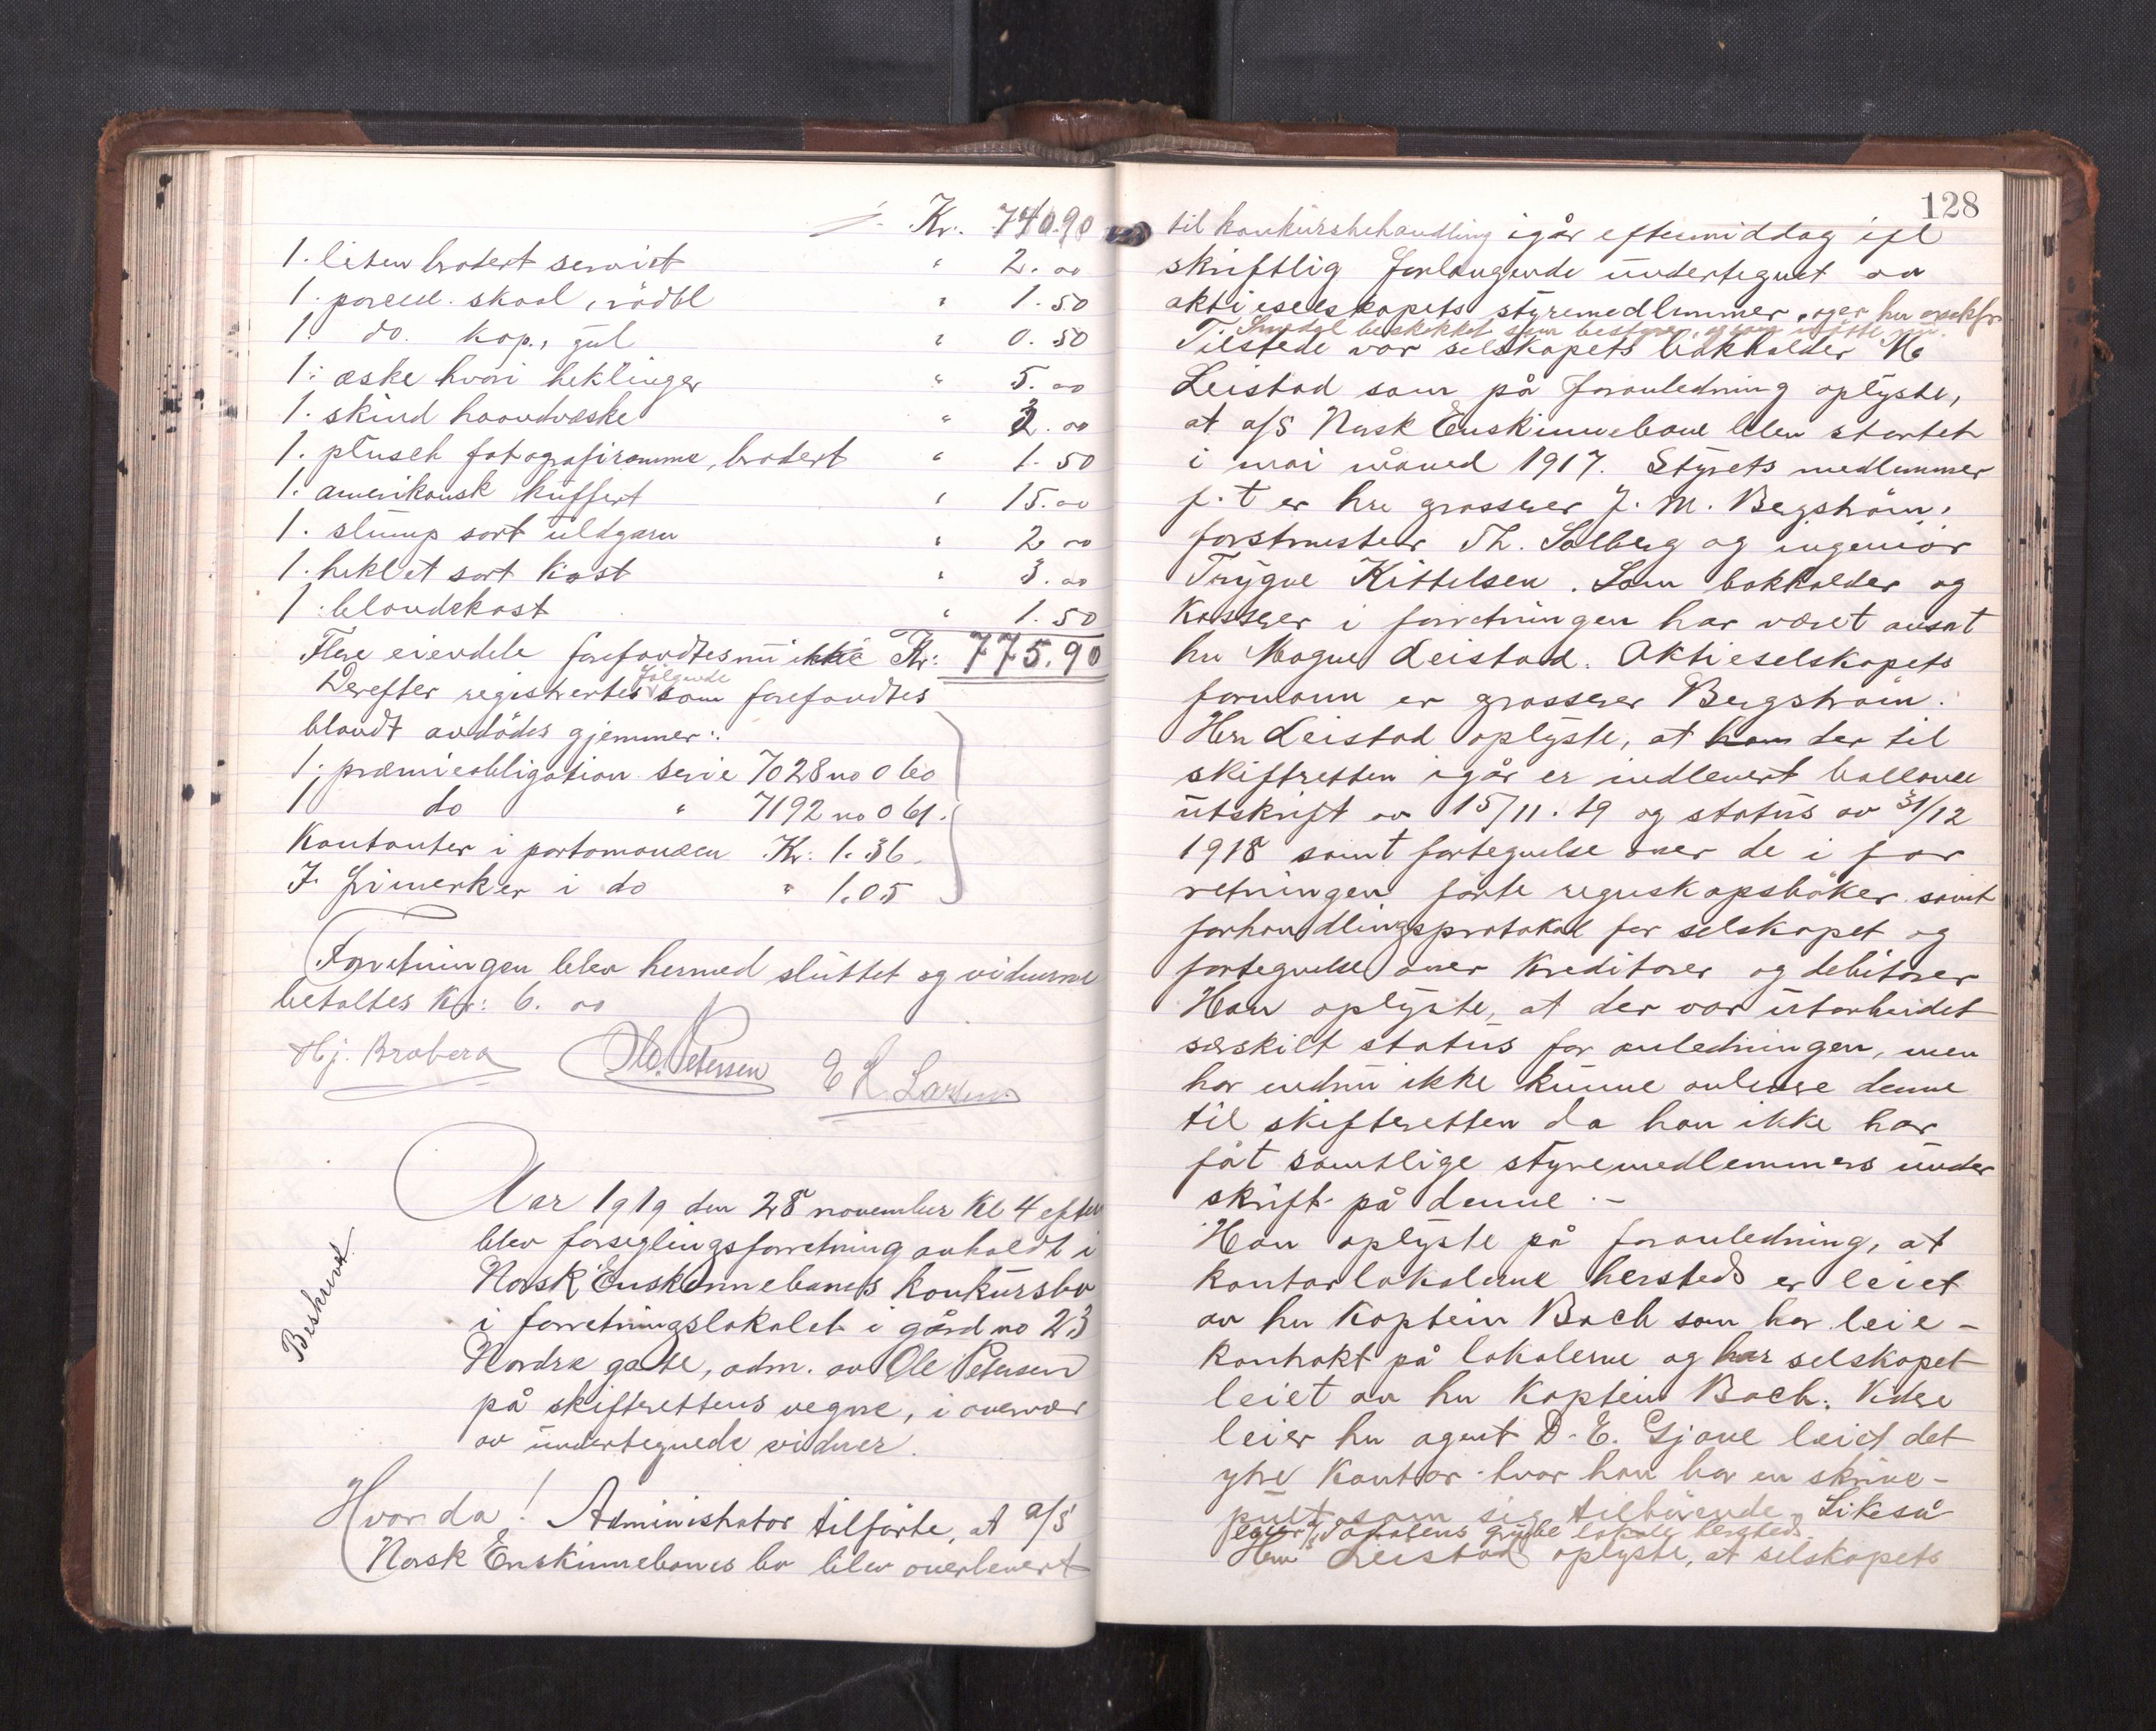 Kr. 740.90
1. liten brodert serviet " 2.00
1. porcel. skaal, rödbl " 1.50
1. do. kop., gul " 0.50
1. æske hvori heklinger " 5.00
1. skind haandvæske " 2.00
1. plusch fotografiramme, brodert " 1.50
1. amerikansk kuffert " 15.00
1. slump sort uldgarn " 2.00
1. heklet sort kast " 3.00
1. blondekast " 1.50
Flere eiendele forefandtes nu ikke Kr: 775.90
følgende
Derefter registrertes som forefandtes
blandt avdödes gjemmer:
1. præmieobligation serie 7028 no 060
1 do " 7192 no 061.
Kontanter i portomonæen Kr: 1.36.
7. frimerker i do " 1.05
Forretningen blev hermed sluttet og vidnerne
betaltes Kr: 6.00
Hj. Broberg Ole Petersen E H. Larsen
Aar 1919 den 28 november Kl 4 efter
blev forseglingsforretning avholdt i
Norsk Enskinnebanes konkursbo
i forretningslokalet i gård no 23
Nordre gate, adm. av Ole Petersen
på skifterettens vegne, i overvær
av undertegnede vidner.
Beskrevet
Hvor da! Administrator tilførte, at a/s
Norsk Enskinnebanes bo blev overlevert
128
til konkursbehandling igår eftermiddag ifl
skriftlig forlangende undertegnet av
aktieselskapets styremedlemmer, og er hr
beskikket som bestyrer,
Tilstede var selskapets bokholder M.
Leistad som på foranledning oplyste,
at a/s Norsk Enskinnebane blev startet
i mai måned 1917. Styrets medlemmer
f. t er hrr grosserer J. M. Bergström,
forstmester Th. Solberg og ingeniör
Trygve Kittelsen. Som bokholder og
kasserer i forretningen har været ansat
hr Magne Leistad. Aktieselskapets
formann er grosserer Bergström.
Herr Leistad oplyste, at ham der til
skifteretten igår er indlevert ballanse
utskrift av 15/11. 19 og status av 31/12
1918 samt fortegnelse over de i for
retningen førte regnskapsbøker samt
forhandlingsprotokol for selskapet og
fortegnelse over kreditorer og debitorer
Han oplyste, at der var utarbeidet
særskilt status for anledningen, men
har endnu ikke kunne avlevere denne
til skifteretten da han ikke har
fåt samtlige styremedlemmers under
skrift på denne.-
Han oplyste på foranledning, at
kontorlokalerne hersteds er leiet
av hr kaptein Bach som har leie-
kontrakt på lokalerne og har selskapet
leiet av hr kaptein Bach. Videre
leier hr agent D. E. Gjone leiet det
ytre kontor hvor han har en skrive-
pult som sig tilhörende. Likeså
lokale hersteds
Herr Leistad oplyste, at selskapets